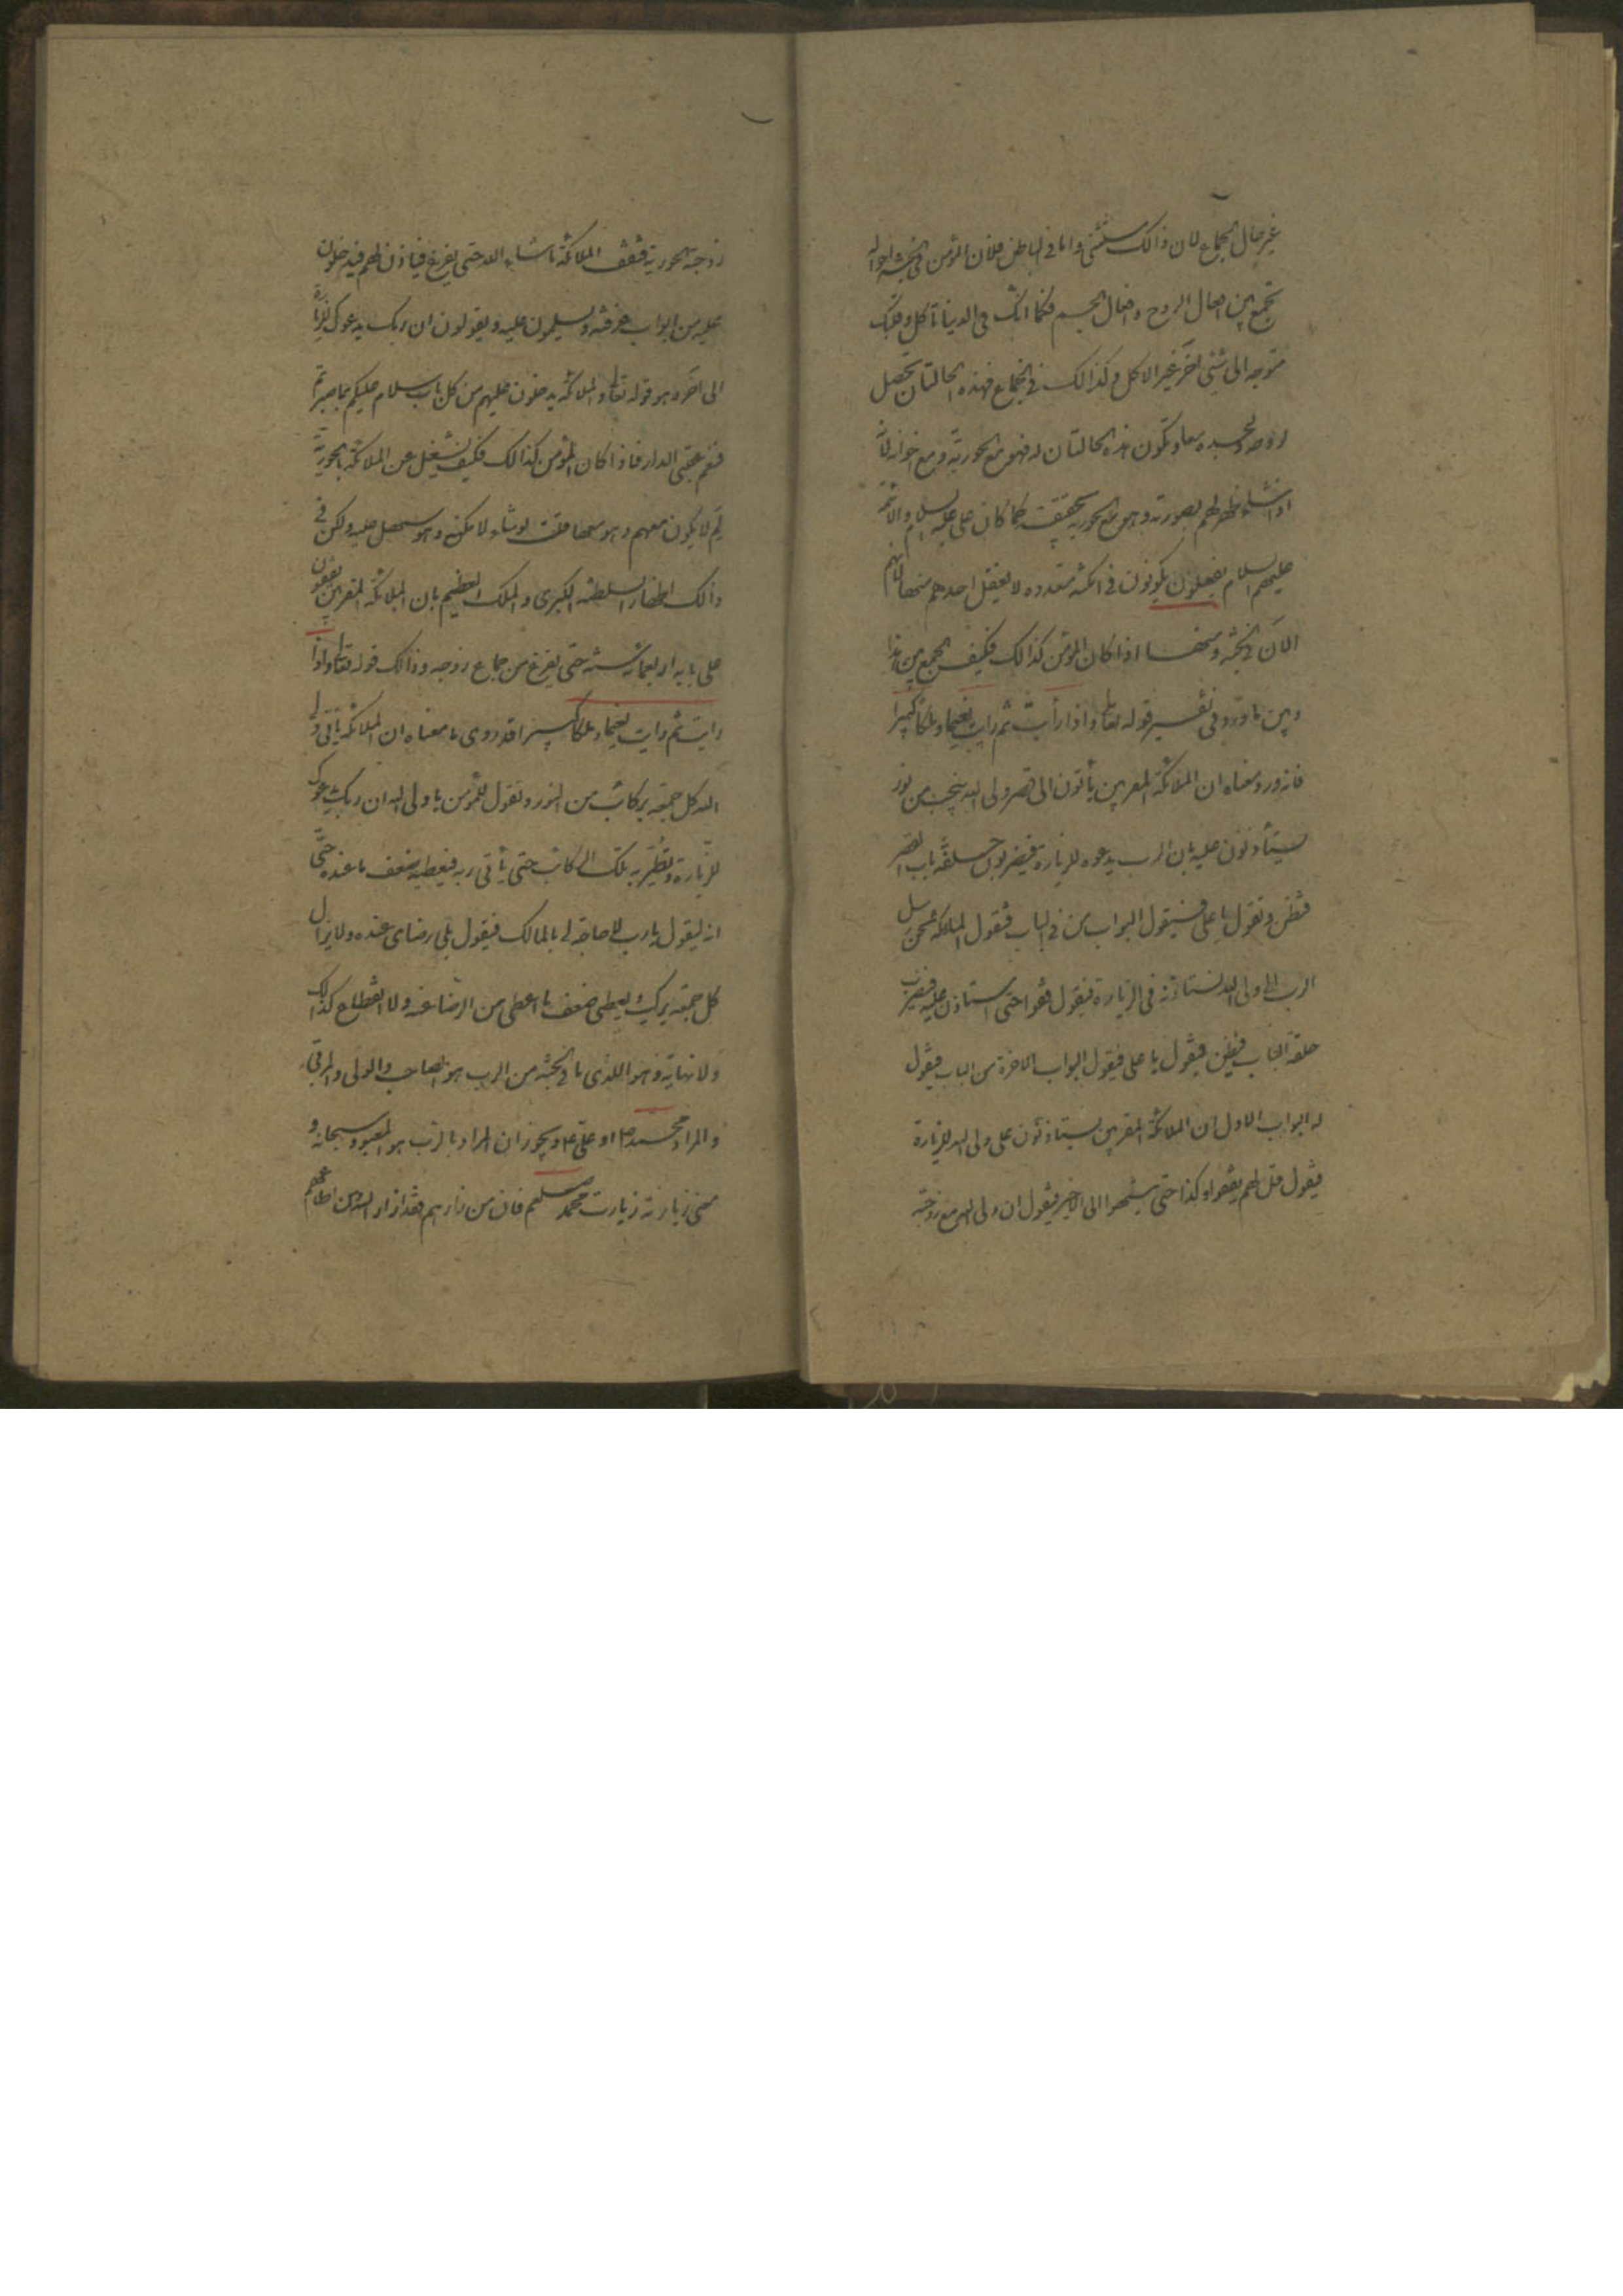 غير حال الجماع لان ذالك مستثنى واما في الباطن فلان المؤمن في الجنة احواله
تجمع بين افعال الروح وافعال الجسم فكما انك في الدنيا تأكل وقلبك
متوجه الى شئ آخر غير الاكل وكذالك في الجماع فهذه الحالتان تحصل
لروحه وجسده معا وتكون هذه الحالتان له فهو مع الحورية ومع اخوانه لانه
اذا شاء ظهر لهم بصورته وهو مع الحورية بحقيقته كما كان علي عليه السلام والائمة
عليهم السلام يفعلون يكونون في امكنة متعدده لا يفقد احدهم منها لانهم
الآن في الجنة ومنها اذا كان المؤمن كذالك فكيف الجمع بين هذا
وبين ما ورد في تفسير قوله تعالى واذا رأيت ثم رأيت نعيما وملكا كبيرا
فانه ورد معناه ان الملائكة المقربين يأتون الى قصر ولي الله بنجب من نور
يستأذنون عليه بان الرب يدعوه للزيارة فيضربون حلقة باب القصر
فتطن وتقول يا علي فيقول البواب من في الباب فتقول الملائكة نحن رسل
الرب الى ولي الله نستاذنه في الزيارة فيقول قفوا حتى استاذن عليه فيضرب
حلقة الباب فيطن فيقول يا علي فيقول البواب الاخر من الباب فيقول
له البواب الاول ان الملائكة المقربين يستاذنون على ولي الله للزيارة
فيقول قل لهم يقفوا وكذا حتى ينتهوا الى الاخير فيقول ان ولي الله مع زوجته
زوجته الحورية فتقف الملائكة ما شاء الله حتى يفرغ فياذن لهم فيدخلون
عليه من ابواب غرفته ويسلمون عليه ويقولون ان ربك يدعوك لزيارة
الى آخره وهو قوله تعالى والملائكة يدخلون عليهم من كل باب سلام عليكم بما صبرتم
فنعم عقبى الدار فاذا كان المؤمن كذالك فكيف يشتغل عن الملائكة بالحورية
لم لا يكون معهم وهو معها قلت لو شاء لامكنه وهو سهل عليه ولكن في
ذالك اظهار السلطنة الكبرى والملك العظيم بان الملائكة المقربين يقفون
على بابه اربعمائة سنة حتى يفرغ من جماع زوجه وذالك قوله تعالى واذا
رايت ثم رايت نعيما وملكا كبيرا قد روى ما معناه ان الملائكة يأتي ولي
الله كل جمعة بركائب من النور وتقول للمؤمن يا ولي الله ان ربك يدعوك
للزيارة وتطير به تلك الركائب حتى يأتي ربه فيعطيه ضعف ما عنده حتى
انه ليقول يا رب لا حاجة لي بالمالك فيقول بلى رضاى عنده ولا يزال
كل جمعة يركب ويعطى ضعف ما اعطى من الرضا عنه ولا انقطاع كذالك
ولا نهاية وهو اللذى ما في الجنة من الرب هو الصاحب والولي والمراقي
والمراد محمد ص او علي ع او يجوز ان المراد بالرب هو المعبود سبحانه و
معنى زيارته زيارت محمد صلعم فان من زارهم فقد زار الله ومن اطاعهم